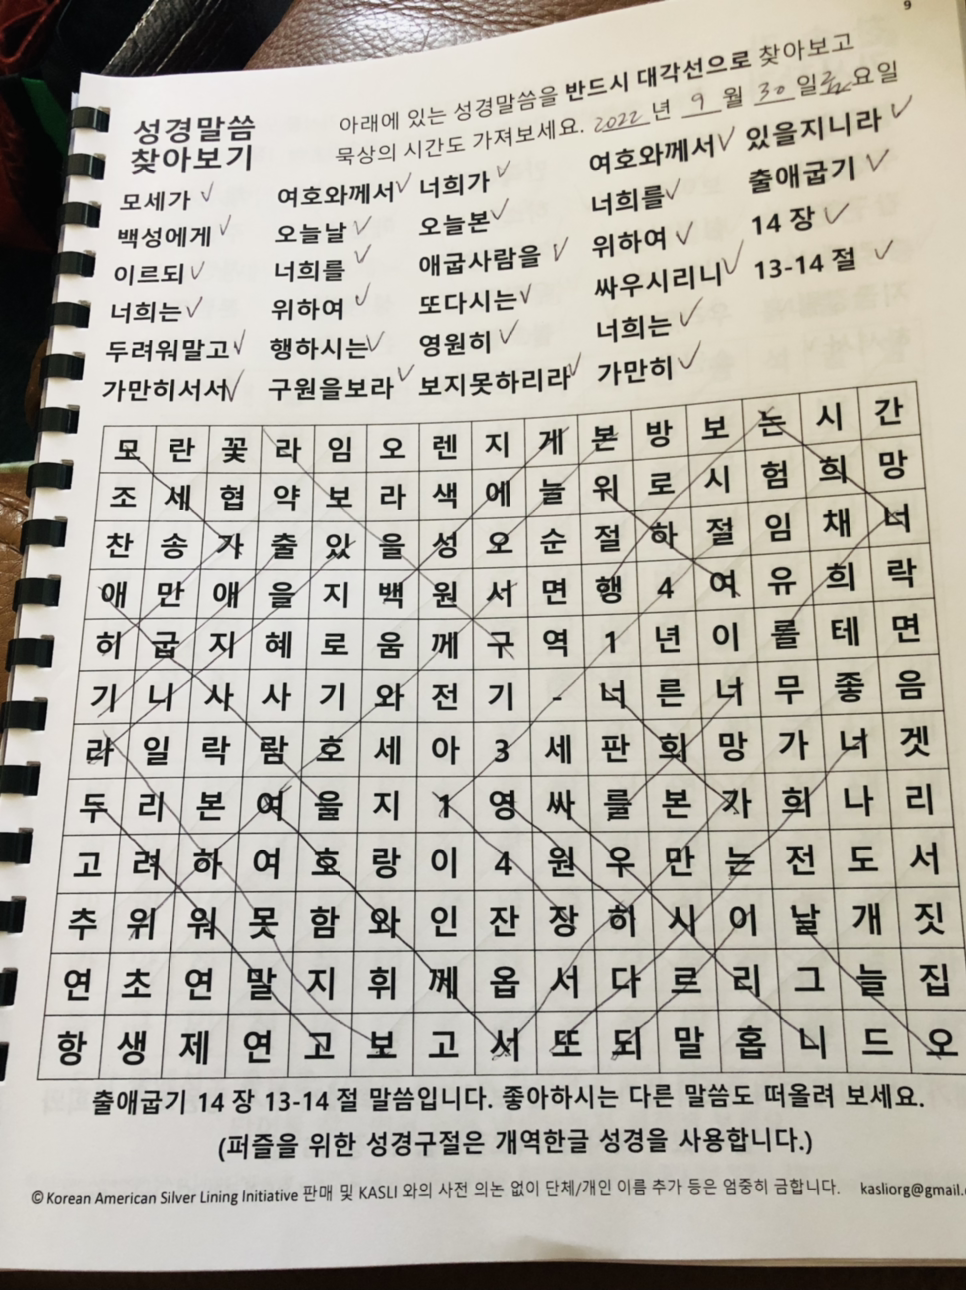 9
성경말씀
찾아보기
아래에 있는 성경말씀을 반드시 대각선으로 찾아보고
묵상의 시간도 가져보세요. 2022 년 9 월 30 일 금 요일
모세가 ✓ 여호와께서 ✓ 너희가 ✓ 여호와께서 ✓ 있을지니라 ✓
백성에게 ✓ 오늘날 ✓ 오늘본 ✓ 너희를 ✓ 출애굽기 ✓
이르되 ✓ 너희를 ✓ 애굽사람을 ✓ 위하여 ✓ 14 장 ✓
너희는 ✓ 위하여 ✓ 또다시는 ✓ 싸우시리니 ✓ 13-14 절 ✓
두려워말고 ✓ 행하시는 ✓ 영원히 ✓ 너희는 ✓
가만히서서 ✓ 구원을보라 ✓ 보지못하리라 ✓ 가만히 ✓
모 란 꽃 라 임 오 렌 지 게 본 방 보 는 시 간
조 세 협 약 보 라 색 에 늘 위 로 시 험 희 망
찬 송 가 출 있 을 성 오 순 절 하 절 임 채 너
애 만 애 을 지 백 원 서 면 행 4 여 유 희 락
히 굽 지 혜 로 움 께 구 역 1 년 이 롤 테 면
기 니 사 사 기 와 전 기 - 너 른 너 무 좋 음
라 일 락 람 호 세 아 3 세 판 희 망 가 너 겟
두 리 본 여 을 지 1 영 싸 를 본 가 희 나 리
고 려 하 여 호 랑 이 4 원 우 만 는 전 도 서
추 위 워 못 함 와 인 잔 장 히 시 이 날 개 짓
연 초 연 말 지 휘 께 옵 서 다 르 리 그 늘 집
항 생 제 연 고 보 고 서 또 되 말 홉 니 드 오
출애굽기 14 장 13-14 절 말씀입니다. 좋아하시는 다른 말씀도 떠올려 보세요.
(퍼즐을 위한 성경구절은 개역한글 성경을 사용합니다.)
© Korean American Silver Lining Initiative 판매 및 KASLI 와의 사전 의논 없이 단체/개인 이름 추가 등은 엄중히 금합니다. kasliorg@gmail.